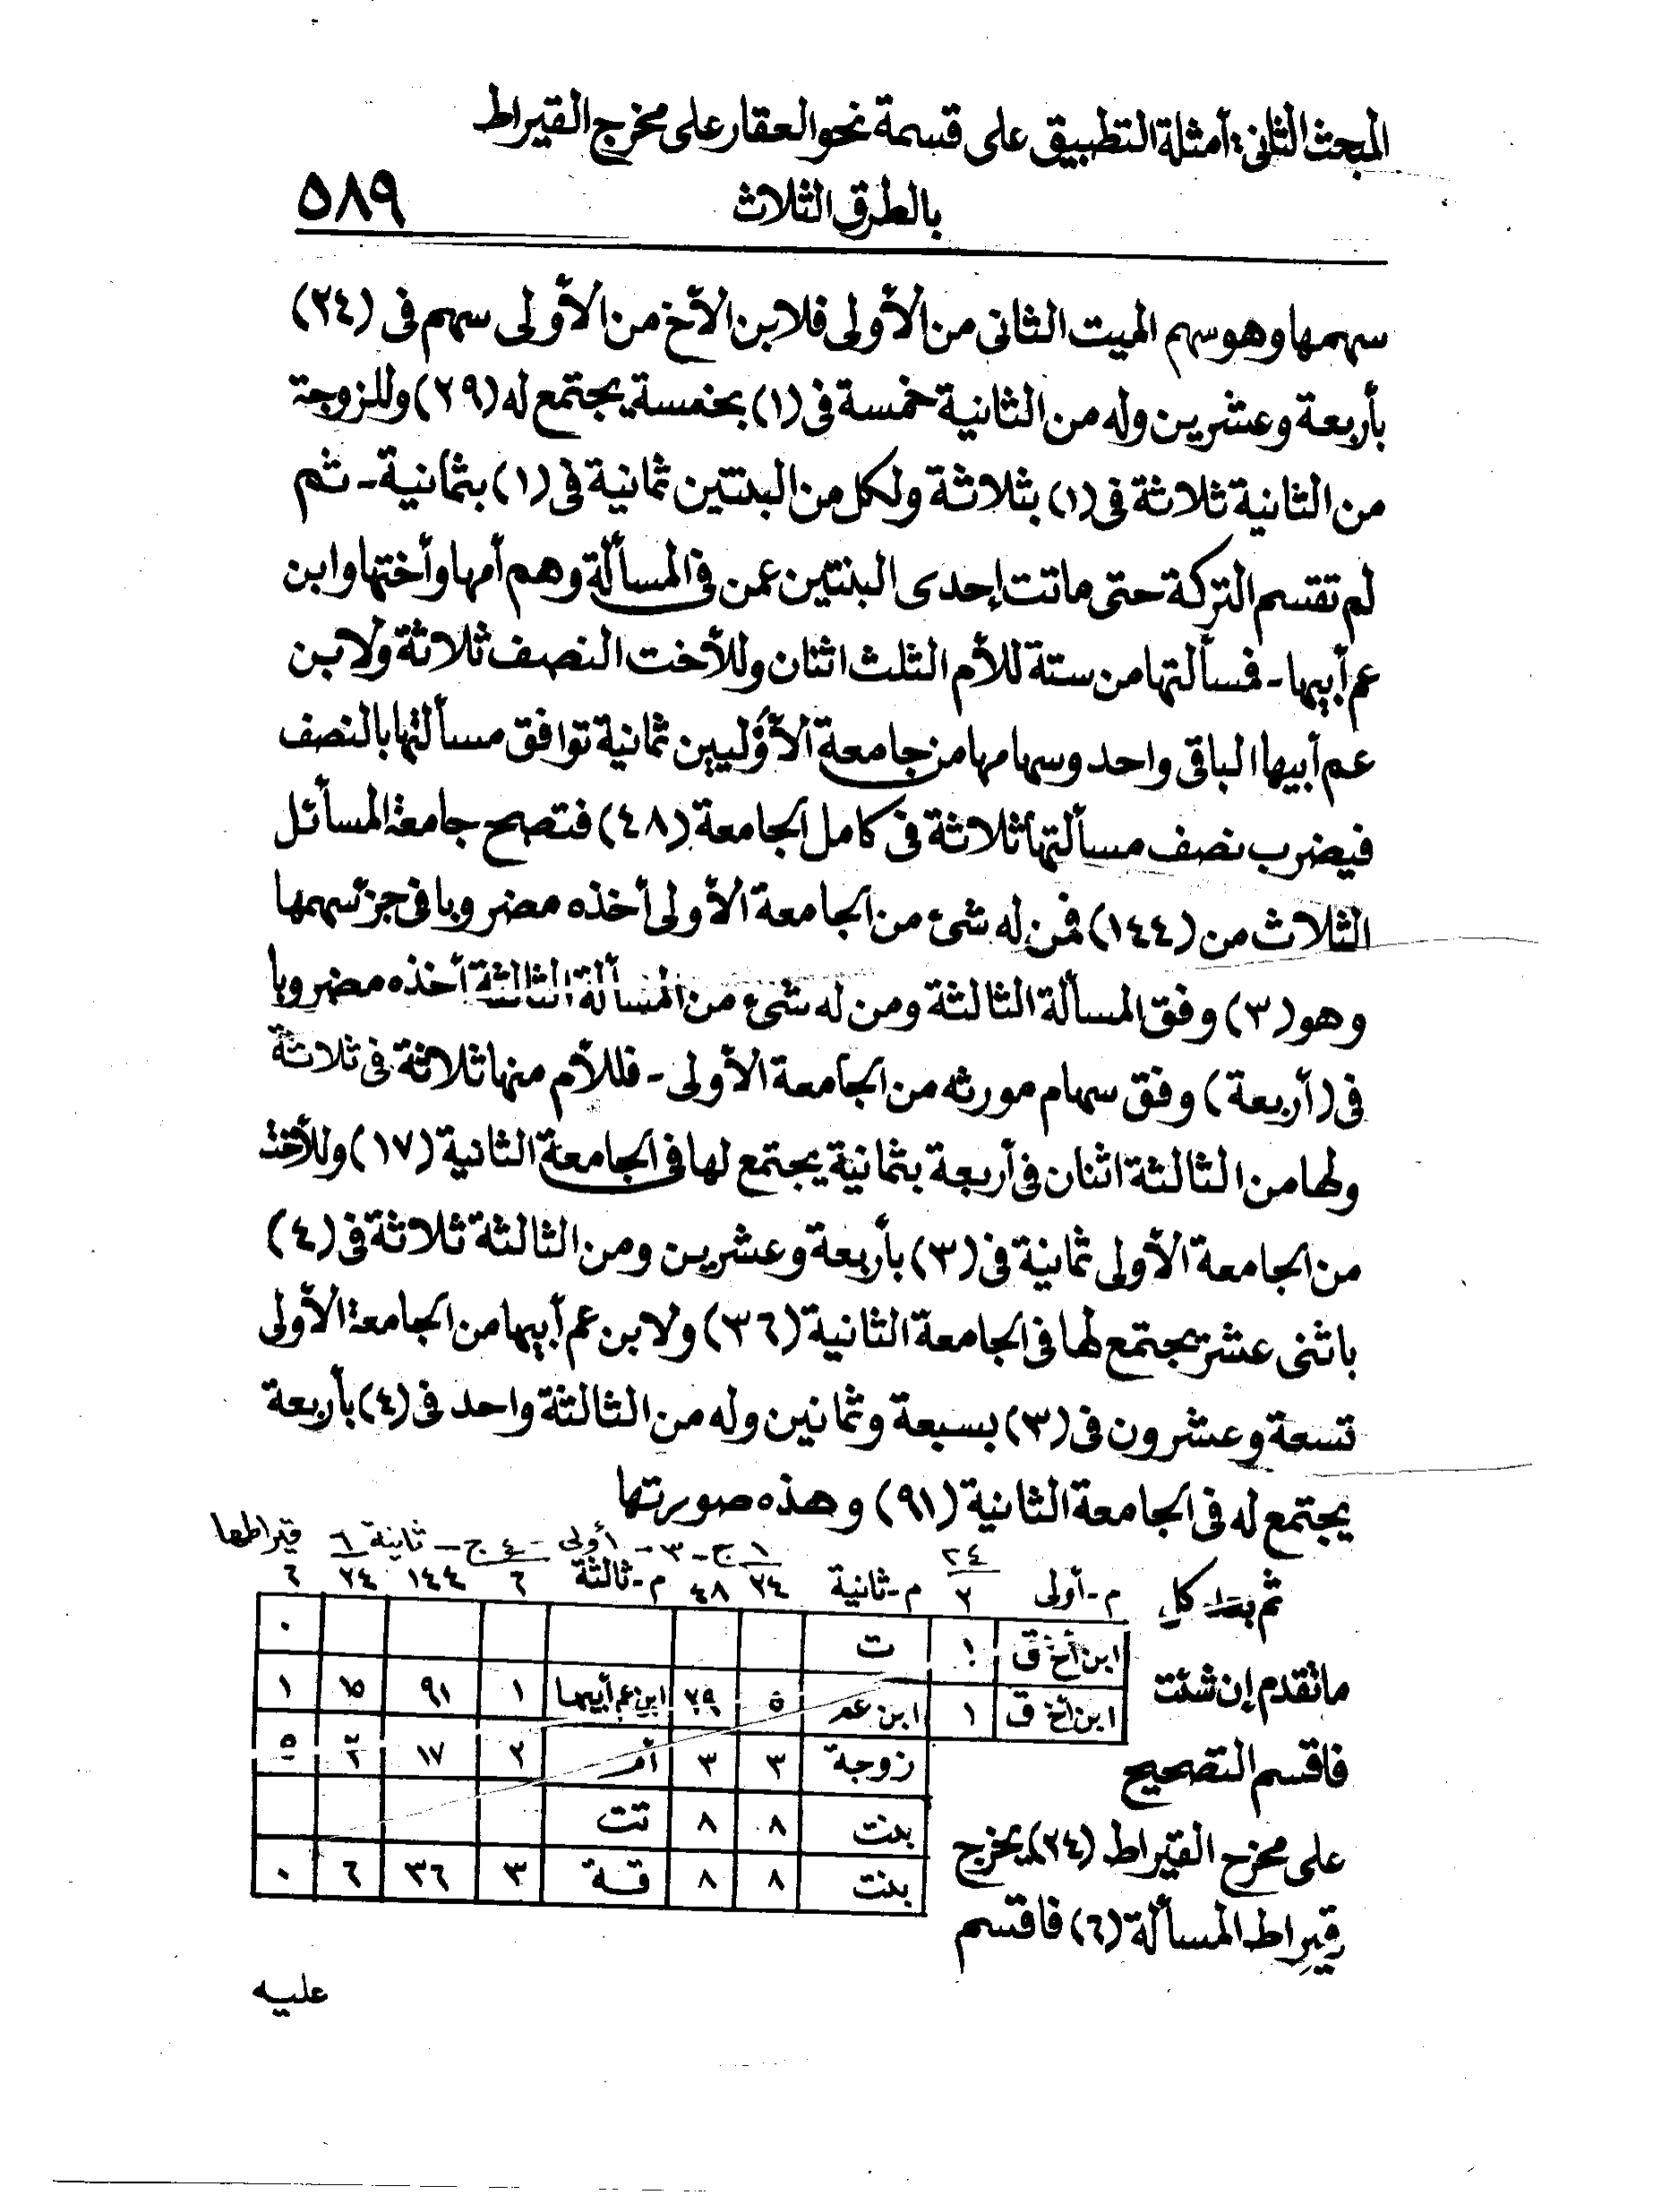 المبحث الثانى: أمثلة التطبيق على قسمة نحو العقار على مخرج القيراط
بالطرق الثلاث ٥٨٩
سهمها وهو سهم الميت الثانى من الأولى فلابن الأخ من الأولى سهم فى (٢٤)
بأربعة وعشرين وله من الثانية خمسة فى (١) بخمسة يجتمع له (٢٩) وللزوجة
من الثانية ثلاثة فى (١) بثلاثة ولكل من البنتين ثمانية فى (١) بثمانية - ثم
لم تقتسم التركة حتى ماتت إحدى البنتين عمن فى المسألة وهم أمها وأختها وابن
عم أبيها - فمسألتها من ستة للأم الثلث اثنان وللأخت النصف ثلاثة ولابن
عم أبيها الباقى واحد وسهامها من جامعة الأوليين ثمانية توافق مسألتها بالنصف
فيضرب نصف مسألتها ثلاثة فى كامل الجامعة (٤٨) فتصح جامعة المسائل
الثلاث من (١٤٤) فمن له شئ من الجامعة الأولى أخذه مضروبا فى جزء سهمها
وهو (٣) وفق المسألة الثالثة ومن له شئ من المسألة الثالثة أخذه مضروبا
فى (أربعة) وفق سهام مورثه من الجامعة الأولى - فللأم منها ثلاثة فى ثلاثة
ولها من الثالثة اثنان فى أربعة بثمانية يجتمع لها فى الجامعة الثانية (١٧) وللأخت
من الجامعة الأولى ثمانية فى (٣) بأربعة وعشرين ومن الثالثة ثلاثة فى (٤)
باثنى عشر يجتمع لها فى الجامعة الثانية (٣٦) ولابن عم أبيها من الجامعة الأولى
تسعة وعشرون فى (٣) بسبعة وثمانين وله من الثالثة واحد فى (٤) بأربعة
يجتمع له فى الجامعة الثانية (٩١) وهذه صورتها
٢٤ ١ ج - ٣ - أولى - ٤ ج - ثانية ٦ قيراطها
ثم بعد كل م - أولى ٢ م - ثانية ٢٤ ٤٨ م - ثالثة ٦ ١٤٤ ٢٤ ٦
ابن أخ ق ١ ت ٠
ما تقدم إن شئت
ابن أخ ق ١ ابن عم ٥ ٢٩ ابن عم أبيها ١ ٩١ ١٥ ١
فاقسم التصحيح
زوجة ٣ ٣ أم ٢ ١٧ ٢ ٥
بنت ٨ ٨ تت
على مخرج القيراط (٢٤) يخرج
بنت ٨ ٨ قة ٣ ٣٦ ٦ ٠
قيراط المسألة (٦) فاقسم
عليه